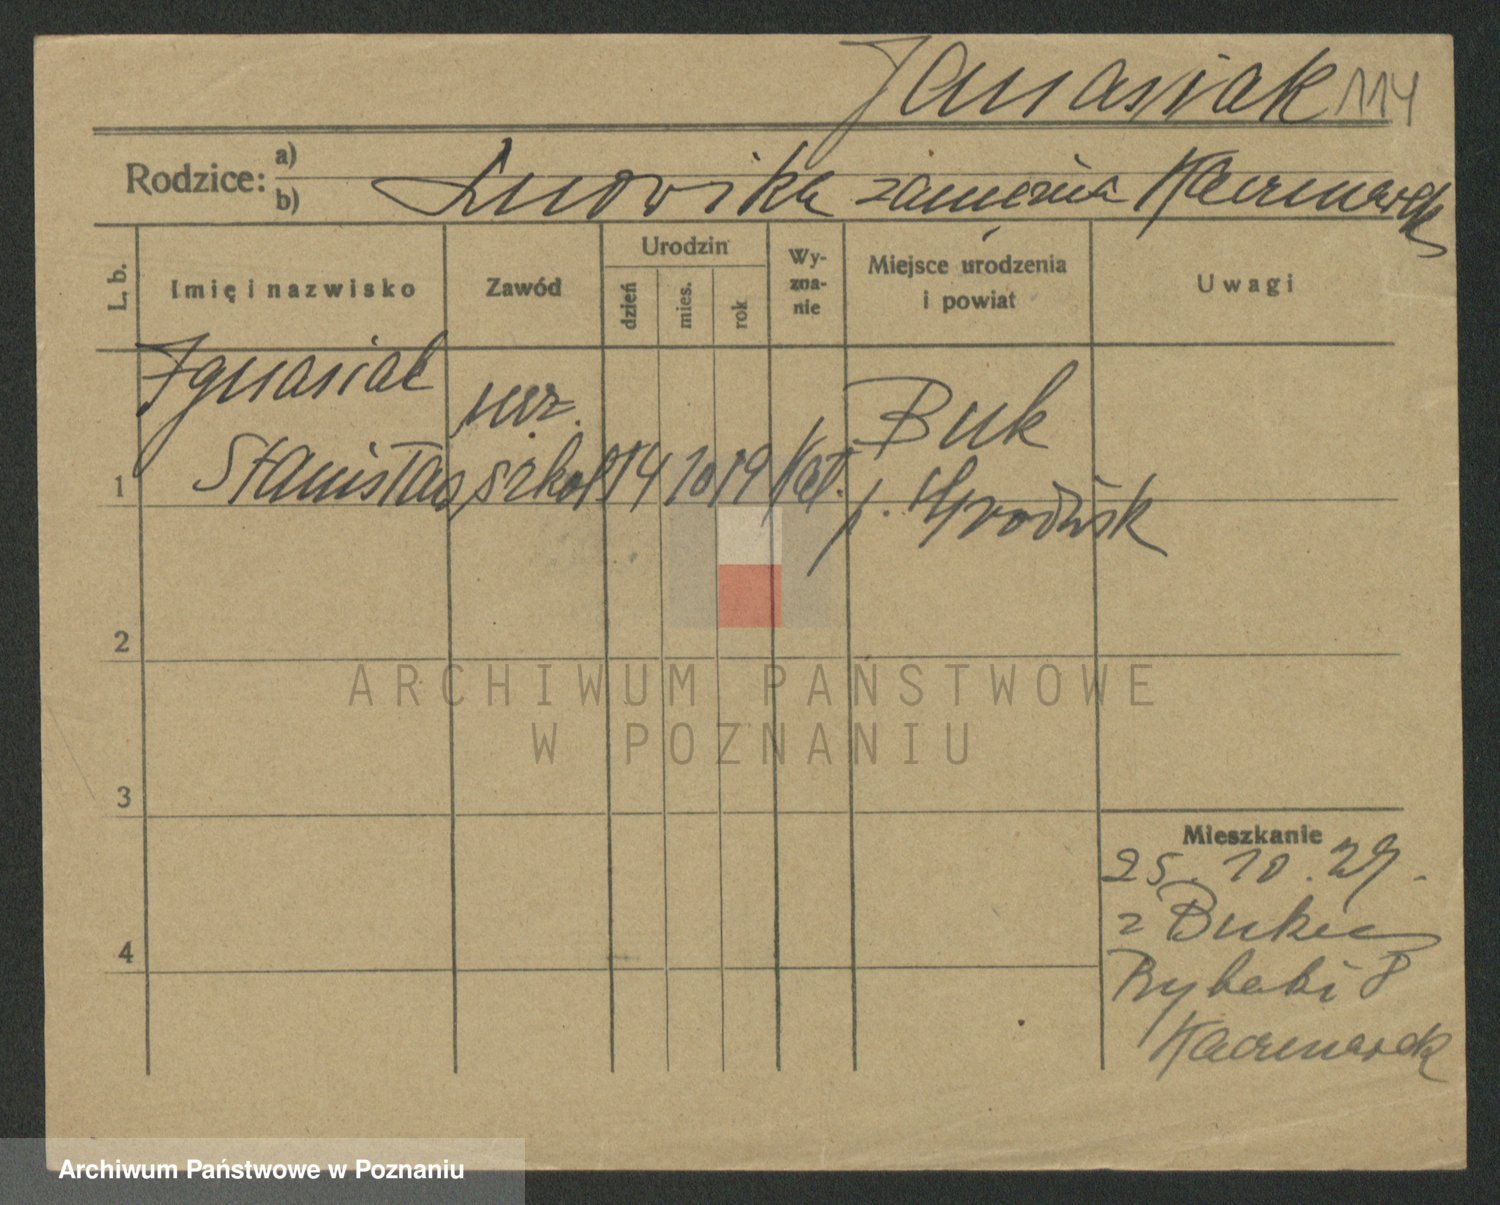 Janasiak 114
Rodzice: a)
b) Ludwika zamężna Kaczmarek
L. b.
Imię i nazwisko
Zawód
Urodzin
dzień
mies.
rok
Wy-
zna-
nie
Miejsce urodzenia
i powiat
Uwagi
Ignasiak
ucz.
Buk
1 Stanisław szkol 14 10 19 kat.
p. Grodzisk
2
3
4
Mieszkanie
25. 10. 29.
z Buku
Rybaki 8
Kaczmarek
ARCHIWUM PAŃSTWOWE
W POZNANIU
Archiwum Państwowe w Poznaniu